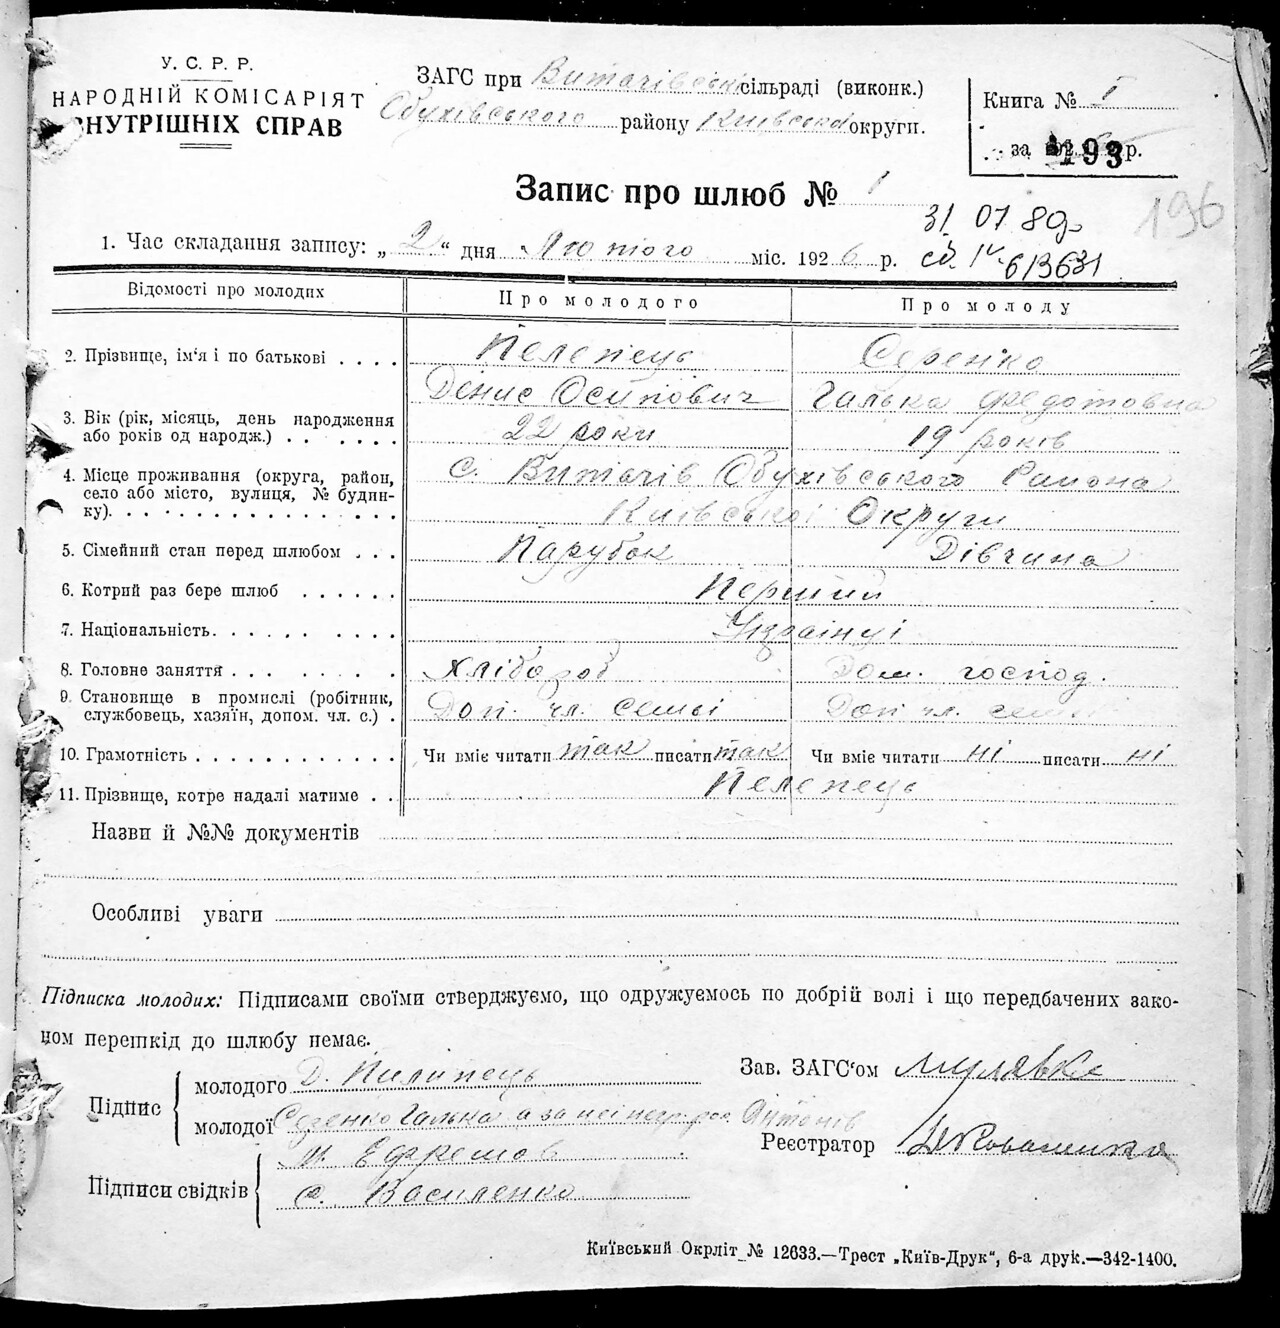 У. С. Р. Р.
НАРОДНІЙ КОМІСАРІЯТ
ВНУТРІШНІХ СПРАВ
ЗАГС при Витачівській сільраді (виконк.)
Обухівського району Київської округи.
Книга № I
за 193 р.
Запис про шлюб № 1
196
31 07 80р
1. Час складання запису: „ 2 “ дня Лютого міс. 1926 р.
613631
Відомості про молодих Про молодого Про молоду
2. Прізвище, ім‘я і по батькові . . . . Пелепець Серенко
Денис Осипович Галька Федотовна
3. Вік (рік, місяць, день народження
або років од народж.) . . . . . . 22 роки 19 років
4. Місце проживання (округа, район,
село або місто, вулиця, № будин-
ку). . . . . . . . . . . . . . . с. Витачів Обухівського Района
Київської Округи
5. Сімейний стан перед шлюбом . . . Парубок Дівчина
6. Котрий раз бере шлюб . . . . . . Перший
7. Національність. . . . . . . . . . Українці
8. Головне заняття . . . . . . . . Хлібороб Дом. господ.
9. Становище в промислі (робітник,
службовець, хазяїн, допом. чл. с.) . Доп. чл. семьі Доп чл. семьі
10. Грамотність . . . . . . . . . . . . Чи вміє читати так писати так Чи вміє читати ні писати ні
11. Прізвище, котре надалі матиме . . Пелепець
Назви й №№ документів
Особливі уваги
Підписка молодих: Підписами своїми стверджуємо, що одружуємось по добрій волі і що передбачених зако-
ном перешкід до шлюбу немає.
Підпис
молодого Д. Пилипець
Зав. ЗАГС‘ом Мулявка
молодої Галька а за неї Антонів
Реєстратор
Підписи свідків
Ефремов
С. Василенко
Київський Окрліт № 12633.—Трест „Київ-Друк“, 6-а друк.—342-1400.